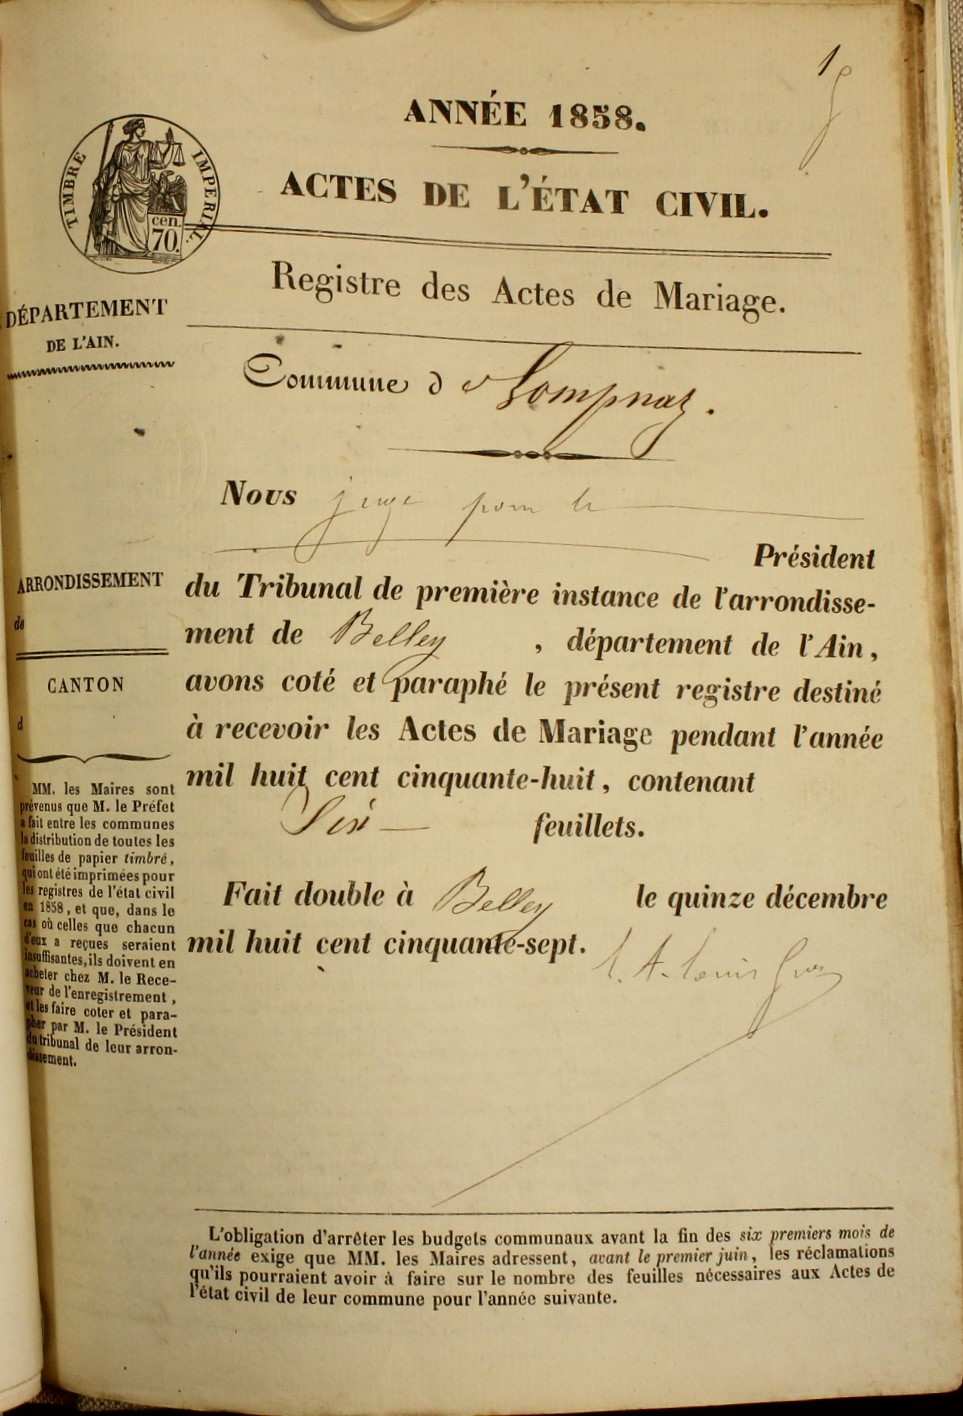 1
ANNÉE 1858.
ACTES DE L'ÉTAT CIVIL.
TIMBRE IMPERIAL
cen.
70.
Registre des Actes de Mariage.
DÉPARTEMENT
DE L'AIN.
Commune de Lompnaz.
Nous juge pour le
Président
du Tribunal de première instance de l'arrondisse-
ment de Belley, département de l'Ain,
avons coté et paraphé le présent registre destiné
à recevoir les Actes de Mariage pendant l'année
mil huit cent cinquante-huit, contenant
Six feuillets.
Fait double à Belley le quinze décembre
mil huit cent cinquante-sept.
ARRONDISSEMENT
de
CANTON
d
MM. les Maires sont
prévenus que M. le Préfet
a fait entre les communes
la distribution de toutes les
feuilles de papier timbré,
qui ont été imprimées pour
les registres de l'état civil
en 1858, et que, dans le
cas où celles que chacun
d'eux a reçues seraient
insuffisantes, ils doivent en
acheter chez M. le Rece-
veur de l'enregistrement,
et les faire coter et para-
pher par M. le Président
du tribunal de leur arron-
dissement.
L'obligation d'arrêter les budgets communaux avant la fin des six premiers mois de
l'année exige que MM. les Maires adressent, avant le premier juin, les réclamations
qu'ils pourraient avoir à faire sur le nombre des feuilles nécessaires aux Actes de
l'état civil de leur commune pour l'année suivante.